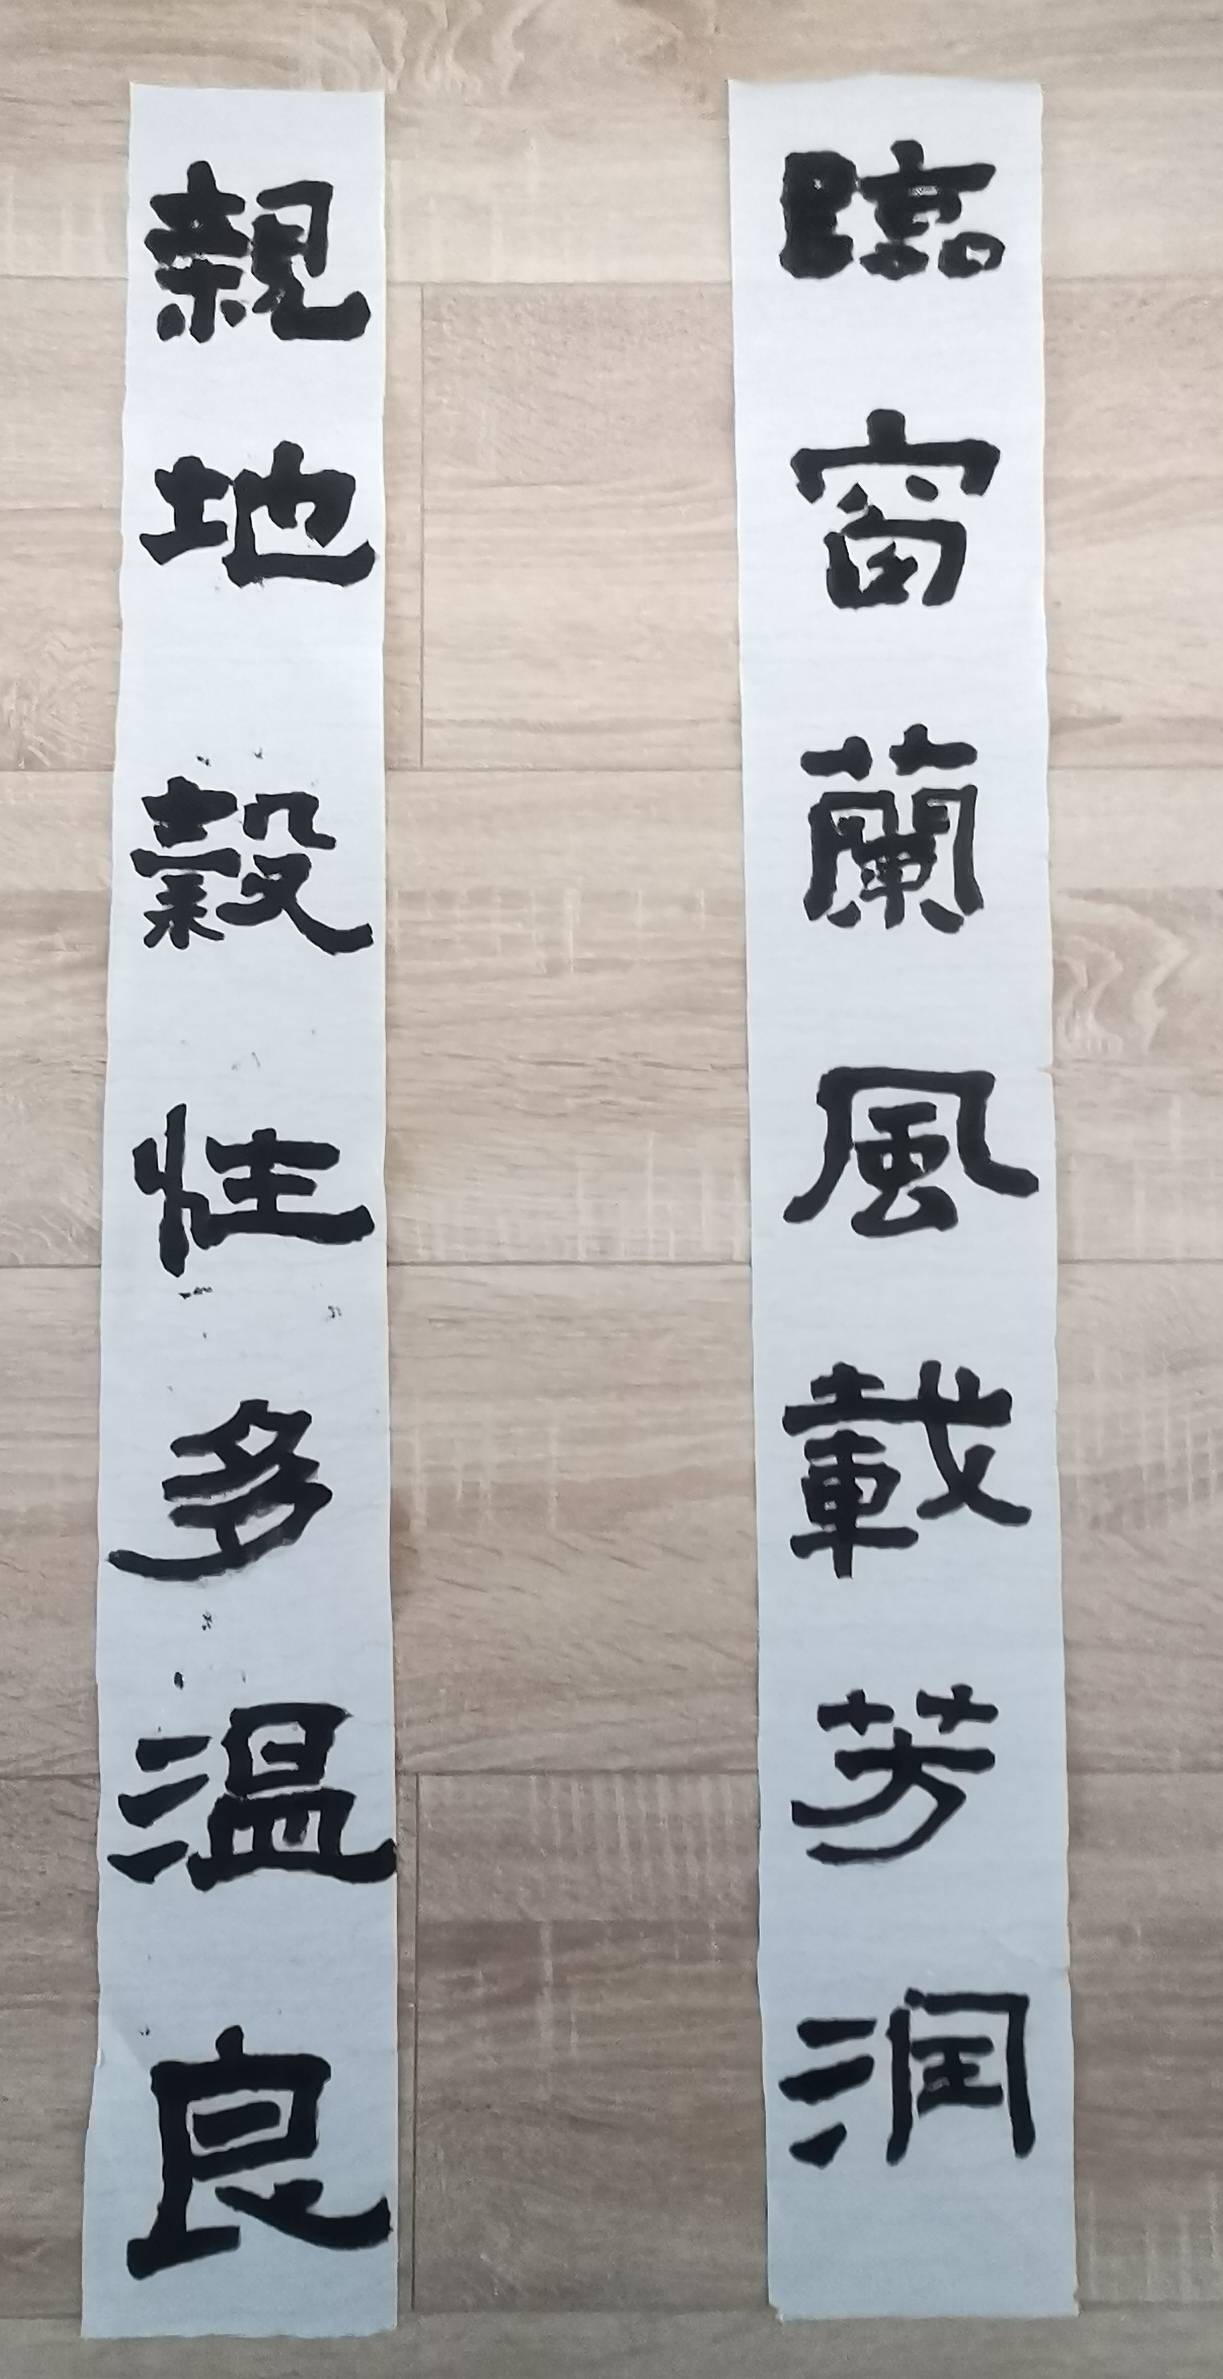 臨窗蘭風載芳润
親地穀性多溫良